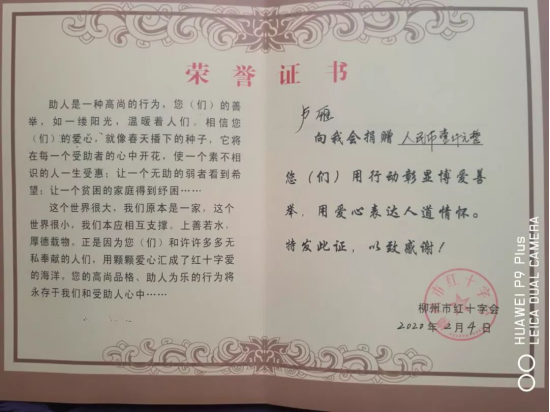 荣誉证书
助人是一种高尚的行为，您（们）的善
举，如一缕阳光，温暖着人们。相信您
（们）的爱心，就像春天播下的种子，它将
在每一个受助者的心中开花，使一个素不相
识的人一生受惠；让一个无助的弱者看到希
望；让一个贫困的家庭得到纾困……
这个世界很大，我们原本是一家，这个
世界很小，我们本应相互支撑。上善若水，
厚德载物，正是因为您（们）和许许多多无
私奉献的人们，用颗颗爱心汇成了红十字爱
的海洋，您的高尚品格、助人为乐的行为将
永存于我们和受助人心中……
卢雁
向我会捐赠 人民币壹仟元整
您（们）用行动彰显博爱善
举，用爱心表达人道情怀。
特发此证，以致感谢！
柳州市红十字会
2020年2月4日
HUAWEI P9 Plus
LEICA DUAL CAMERA